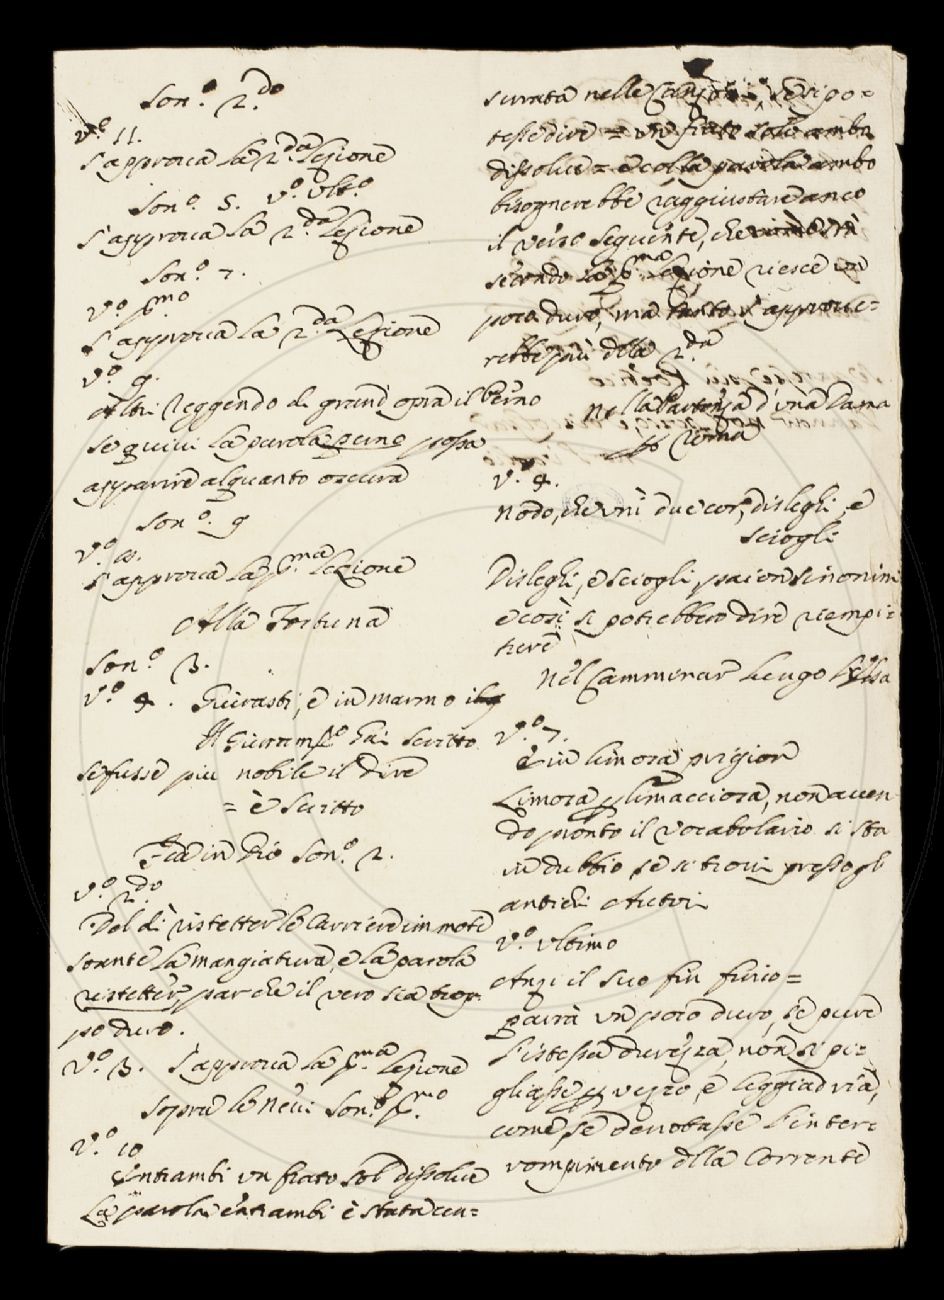 Son.º 2.do
V.º 11.
S'approva la 2.da lezione
Son.º 5. V.º ult.º
S'approva la 2.da lezione
Son.º 7.
V.º p.mo
S'approva la 2.da lezione
V.º 9.
Altri leggendo di grand'opra il perno
se quivi la parola perno possa
apparire alquanto oscura
Son.º 9
V.º
S'approva la p.ma lezione
Alla Fortuna
Son.º 3.
V.º 4. è in marmo
hai scritto
se fusse più nobile il dire
= è scritto
Fede in Dio Son.º 2.
V.º 2.do
Del dì ristetter le carriere immote
sente la mangiatura, e la parola
ristetter par che il verso sia trop-
po duro.
V.º 3. S'approva la p.ma lezione
Sopra le Nevi Son.º p.mo
V.º 10
Entrambi un fiato sol dissolve
La parola entrambi è stata cen=
surata nelle Canzoni, se si po=
tesse dire = un fiato solo ambo
dissolve = e colla parola ambo
bisognerebbe raggiustare anco
il verso seguente, che
secondo la p.ma lezione riesce un
poco duro, ma tanto s'approve=
rebbe più della 2.da
Nella Partenza d'una Dama
Roma
V.º 4.
Nodo, che unì due cor, dislegli, e
sciogli
Dislegli, e sciogli, paion sinonimi
e così si potrebbero dire riempi=
ture
Nel Camminar lungo l'Elsa
V.º 7.
È in limosa prigion
Limosa per limacciosa, non aven
do pronto il vocabolario si sta
in dubbio se si trovi presso gl
antichi Autori
V.º ultimo
Anzi il suo fin finio=
parrà un poco duro, se pure
l'istessa durezza, non si pi=
gliasse per vezzo, e leggiadria,
come se denotasse l'inter=
rompimento della Corrente